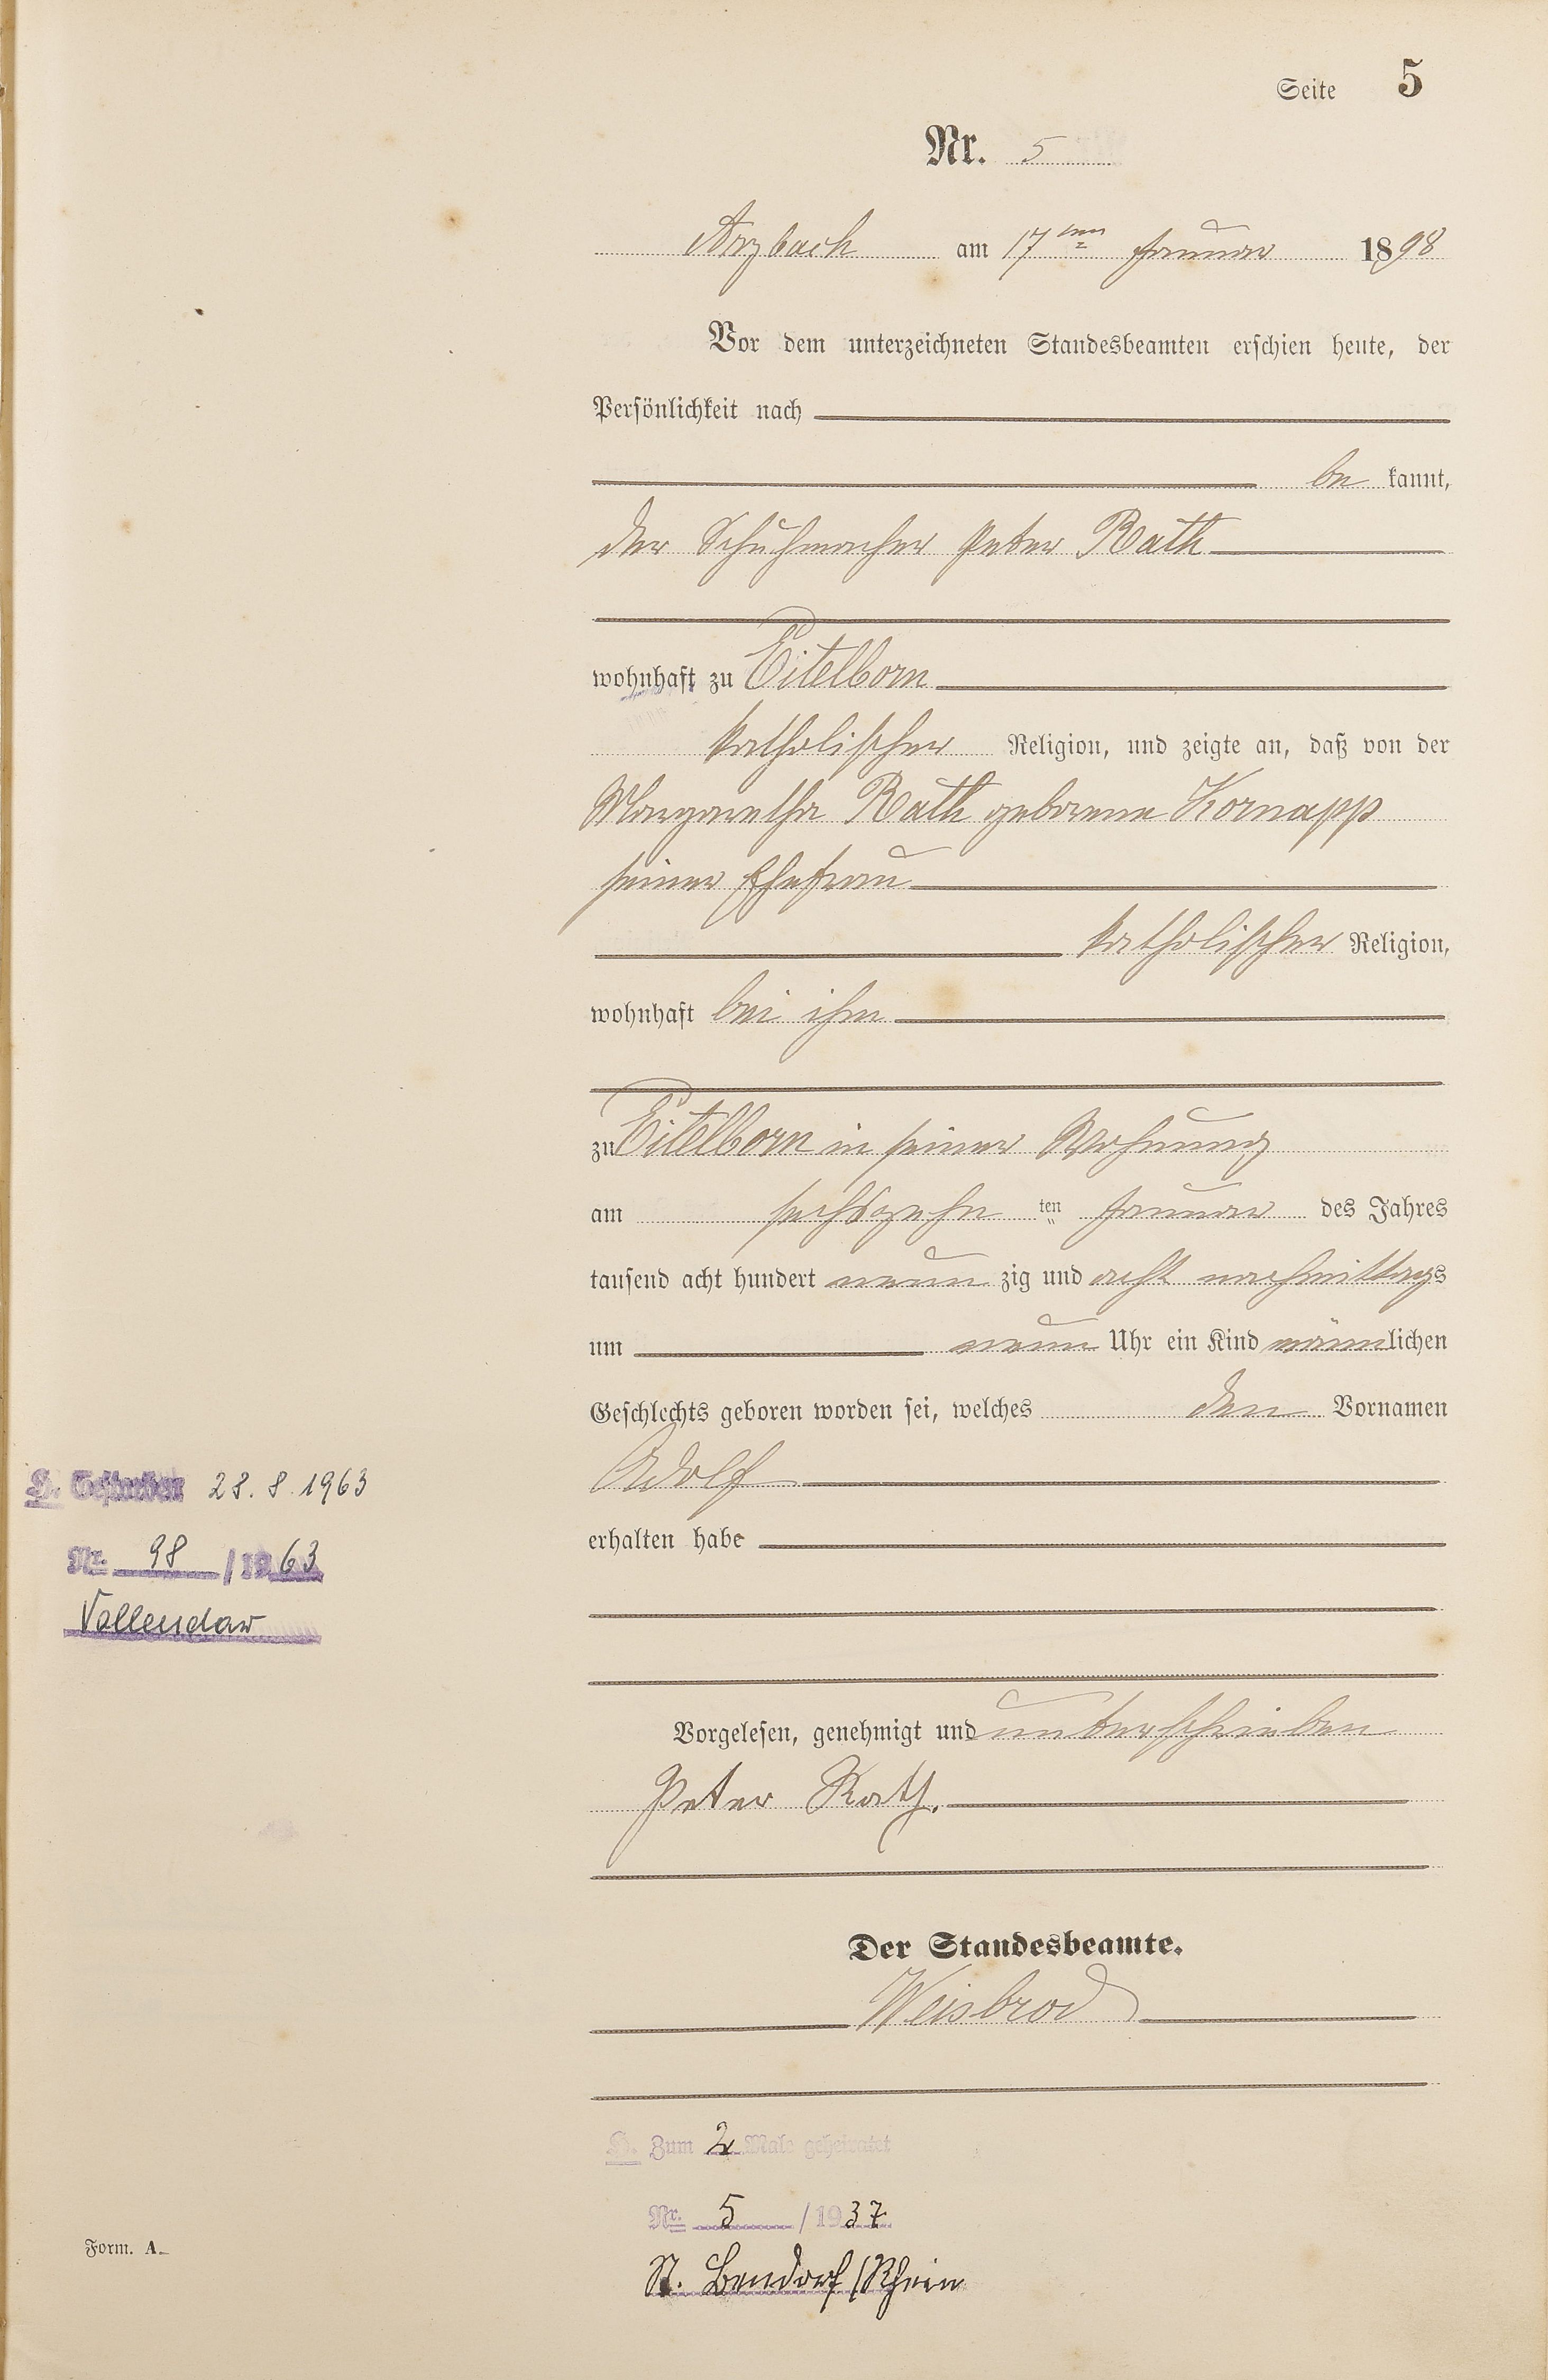 Seite 5
Nr. 5
Arzbach am 17ten Januar 1898
Vor dem unterzeichneten Standesbeamten erschien heute, der
Persönlichkeit nach
be kannt,
der Schuhmacher Peter Rath
wohnhaft zu Eitelborn
katholischer Religion, und zeigte an, daß von der
Margaretha Rath geborene Kornapp
seiner Ehefrau
katholischer Religion,
wohnhaft bei ihm
zu Eitelborn in seiner Wohnung
am sechszehn ten Januar des Jahres
tausend acht hundert neun zig und acht nachmittags
um neun Uhr ein Kind männlichen
Geschlechts geboren worden sei, welches den Vornamen
Adolf
erhalten habe
Vorgelesen, genehmigt und unterschrieben
Peter Rath.
Der Standesbeamte.
Weisbrod
H. Zum 2. Male geheiratet
Nr. 5 / 1937
St. Bendorf/Rhein
Gestorben 28. 8. 1963
Nr. 98 / 1963
Vallendar
Form. A.